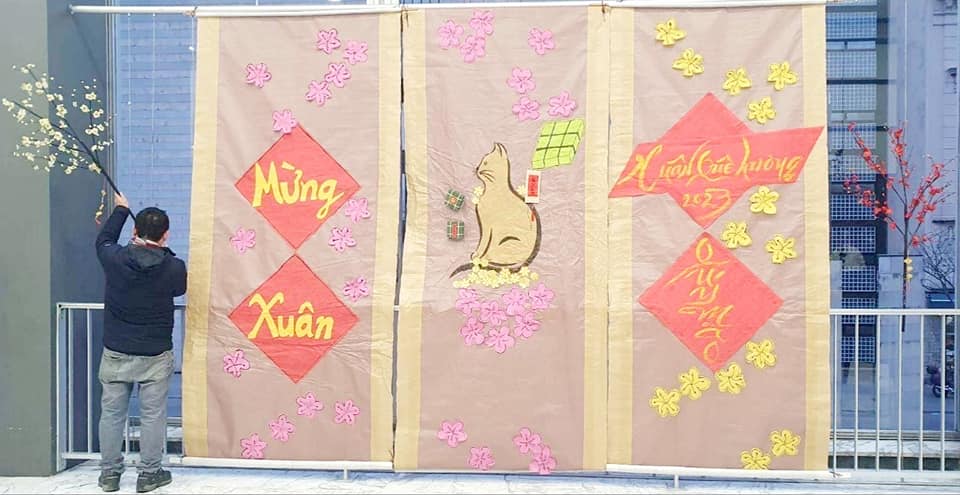 Mừng
Xuân
Xuân Quê hương
2023
QUÝ MÃO